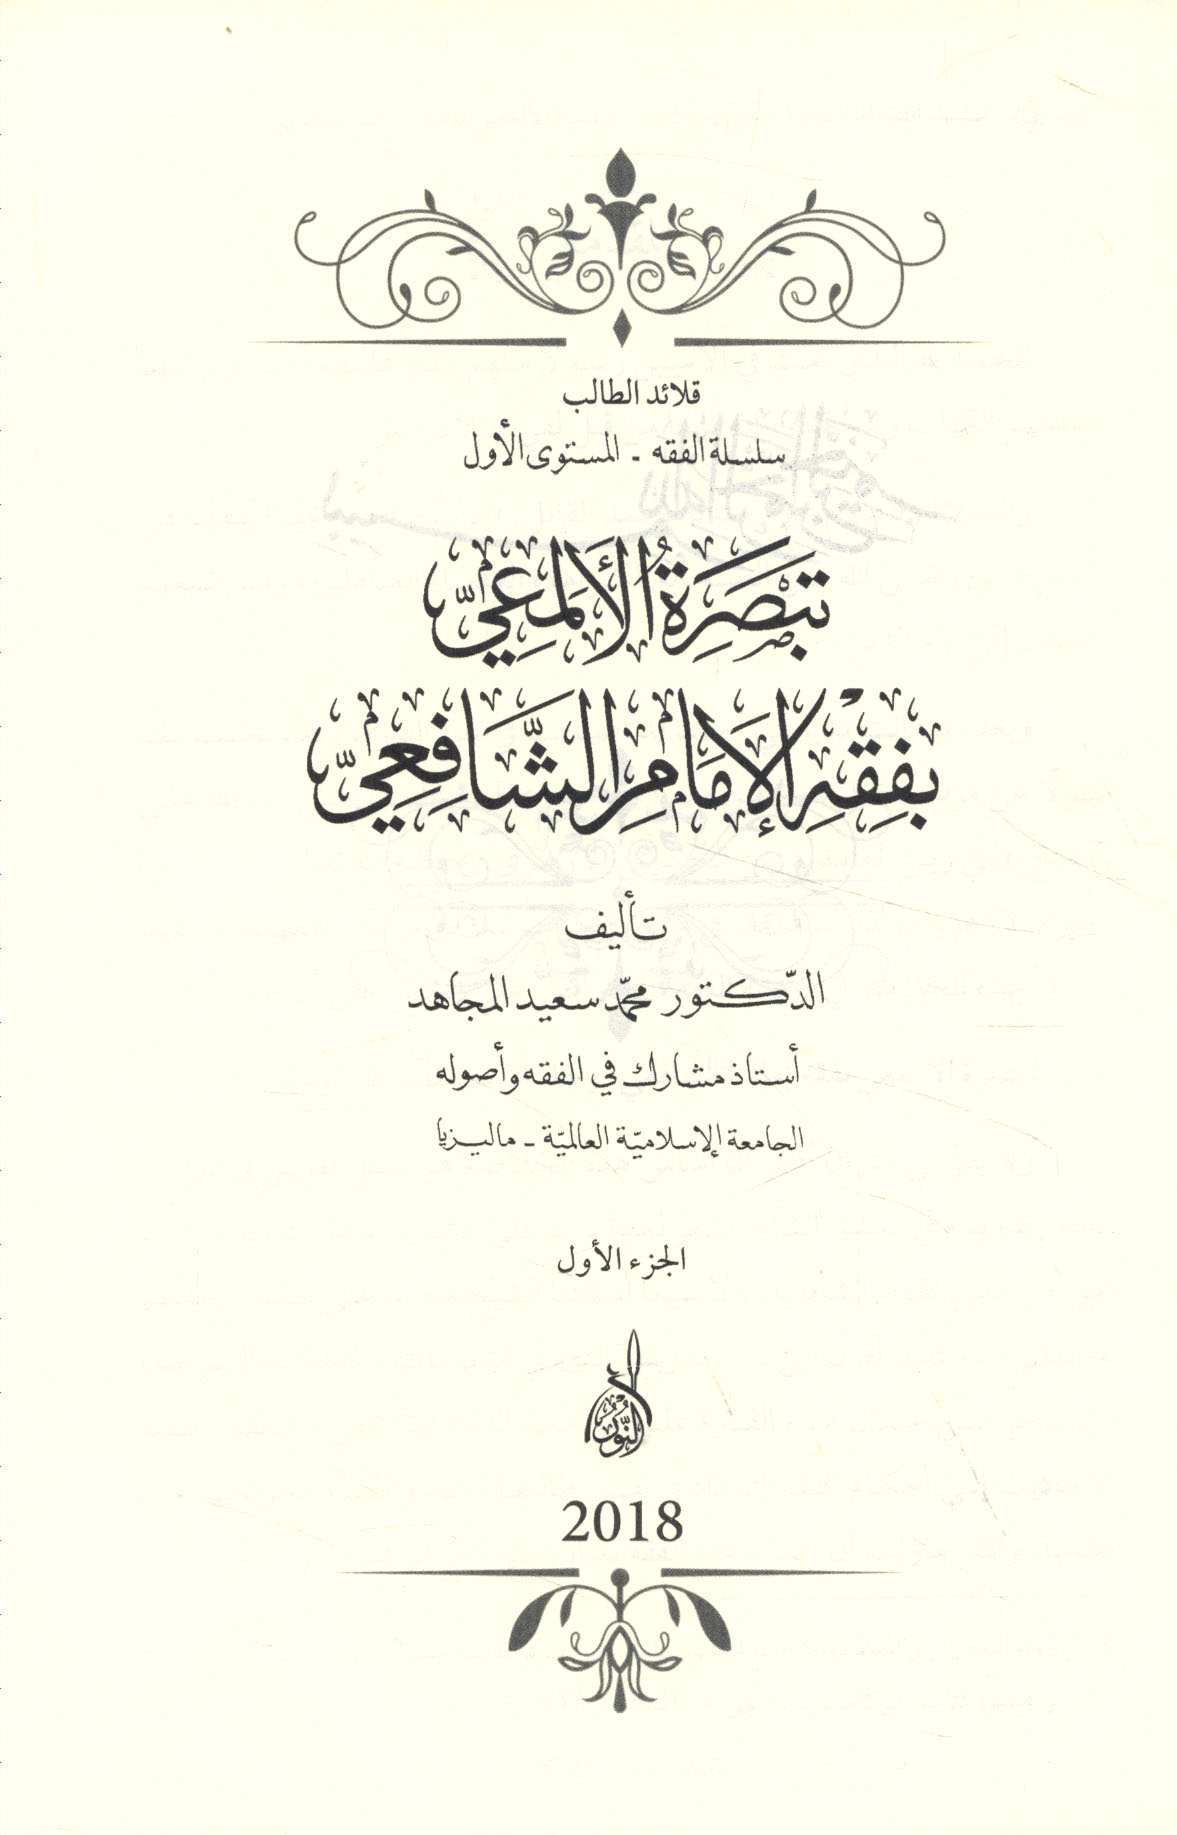 قلائد الطالب
سلسلة الفقه - المستوى الأول
تبصرة الألمعيّ
بفقه الإمام الشّافعيّ
تأليف
الدّكتور محمّد سعيد المجاهد
أستاذ مشارك في الفقه وأصوله
الجامعة الإسلاميّة العالميّة - ماليزيا
الجزء الأول
النّور
2018